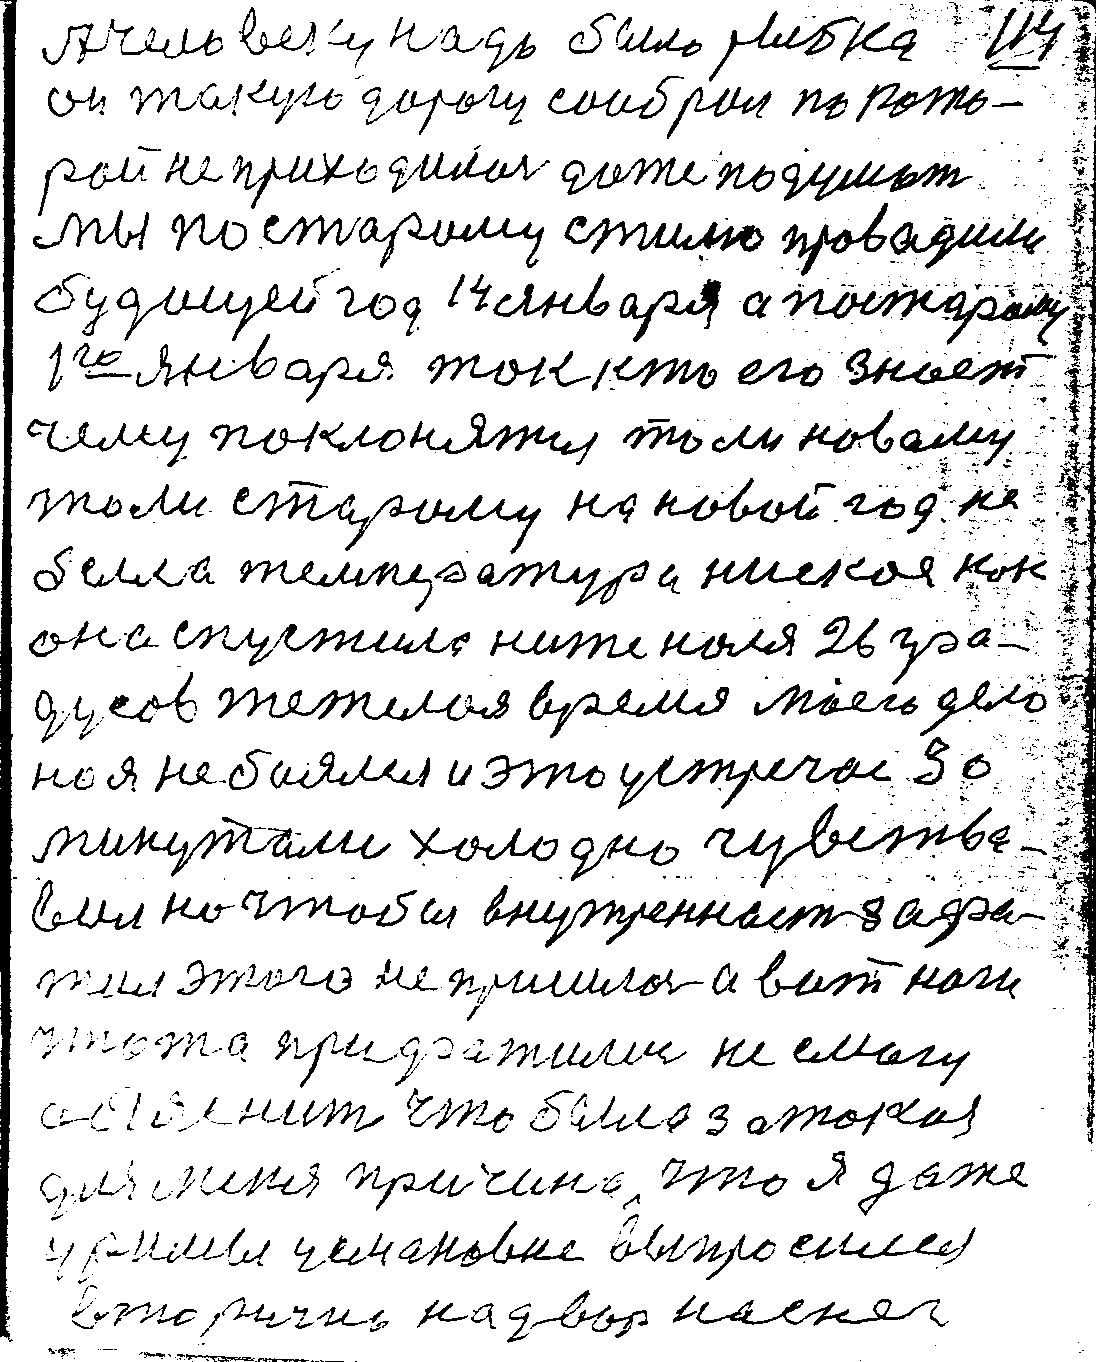 А человеку надо было рыбка 114
он такую дорогу собрал по кото-
рой не приходилося даже подумат
мы по старому стилю провадили
будущей год 14 января а по старому
1го января так кто его знает
чему поклонятся то ли новому
толи старому на новой год не
была температура ниская как
она спустила ниже ноля 26 гра-
дусов тежелоя время моего дело
но я не боялся и это устречае 30
минутами холодно чувства-
вал но чтобы внутренност
этого не пришлося а вот ноги
чтота не смогу
что была за такая
для меня причина, что я даже
выпросился
вторично на двор на снег